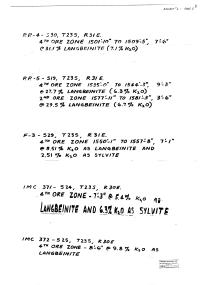 P.P.-4 - S30, T23S, R31E.
4TH ORE ZONE
LANGBEINITE (7.1% K2O)
P.P.-5 - S19, T23S, R31E.
4TH ORE ZONE 1535'-0" TO 1544'-3", 9'-3"
@ 27.7% LANGBEINITE (6.3% K2O)
2ND ORE ZONE 1577'-11" TO 1581'-5", 3'-6"
@ 29.5% LANGBEINITE (6.7% K2O)
F-3 - S29, T23S, R31E.
4TH ORE ZONE 1550'-1" TO 1557'-2", 7'-1"
@ 8.51% K2O AS LANGBEINITE AND
2.51% K2O AS SYLVITE
IMC 371 - S24, T23S, R30E.
4TH ORE - 7'-3" @ 5.4% K2O AS
LANGBEINITE AND 6.3% K2O AS SYLVITE
IMC 372 - S25, T23S, R30E
4TH ORE - 8'-6" @ 9.8% K2O AS
LANGBEINITE